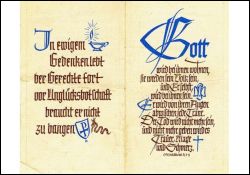 In ewigem
Gedenken lebt
der Gerechte fort
vor Unglücksbotschaft
braucht er nicht
zu bangen
Gott
wird bei ihnen wohnen,
sie werden sein Volk sein,
und Er selbst,
wird bei ihnen sein.
Er wird von ihren Augen
abwischen jede Träne.
Der Tod wird nicht mehr sein,
und nicht mehr geben wird es
Trauer, Klage
und Schmerz.